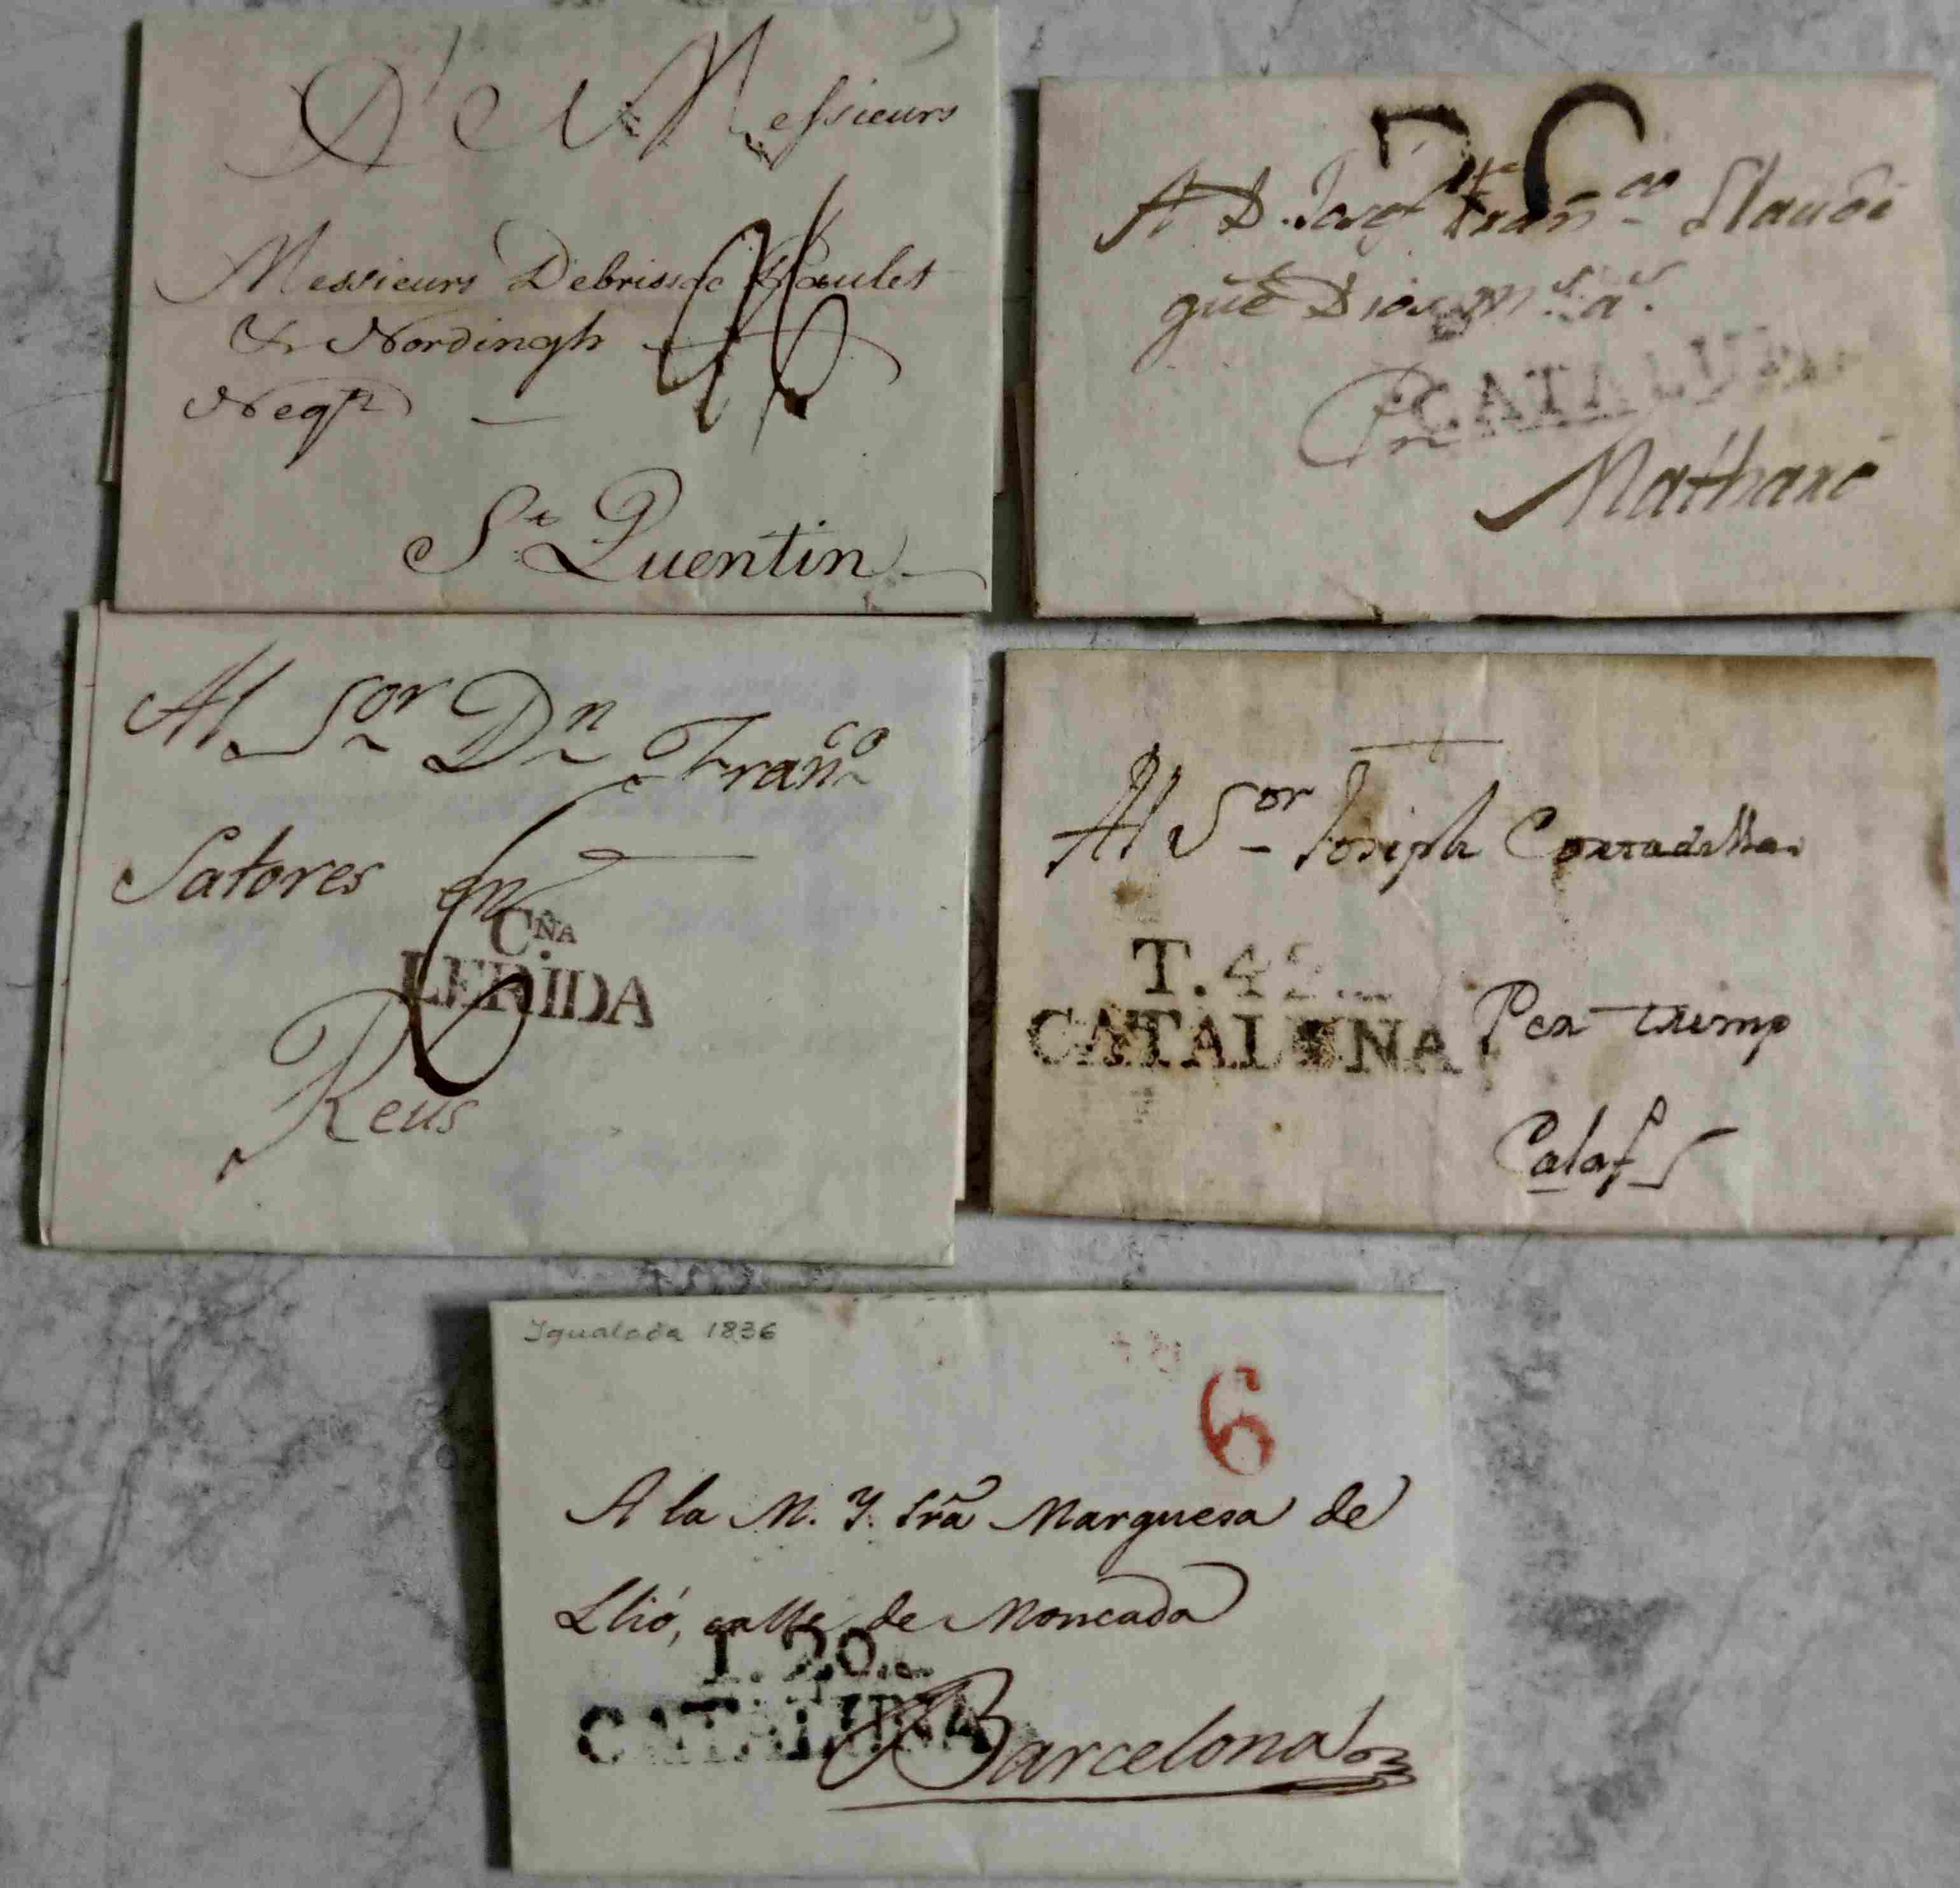 A Messieurs
Messieurs Debrissac Poulet
& Nordingh
Negts
St Quentin
A D. Josef Franco
gue Dios ms as
En CATALUÑA
Matharó
Al Sor Dn Franco
Satores en
6
CÑA.
LERIDA
Reus
Al Sor Joseph
T. 42.
CATALUÑA
Per tremp
Calaf
Ygualada 1836
6
A la M. Y. Sra Marquesa de
Llió, calle de Moncada
T. 20.
CATALUÑA
Barcelona